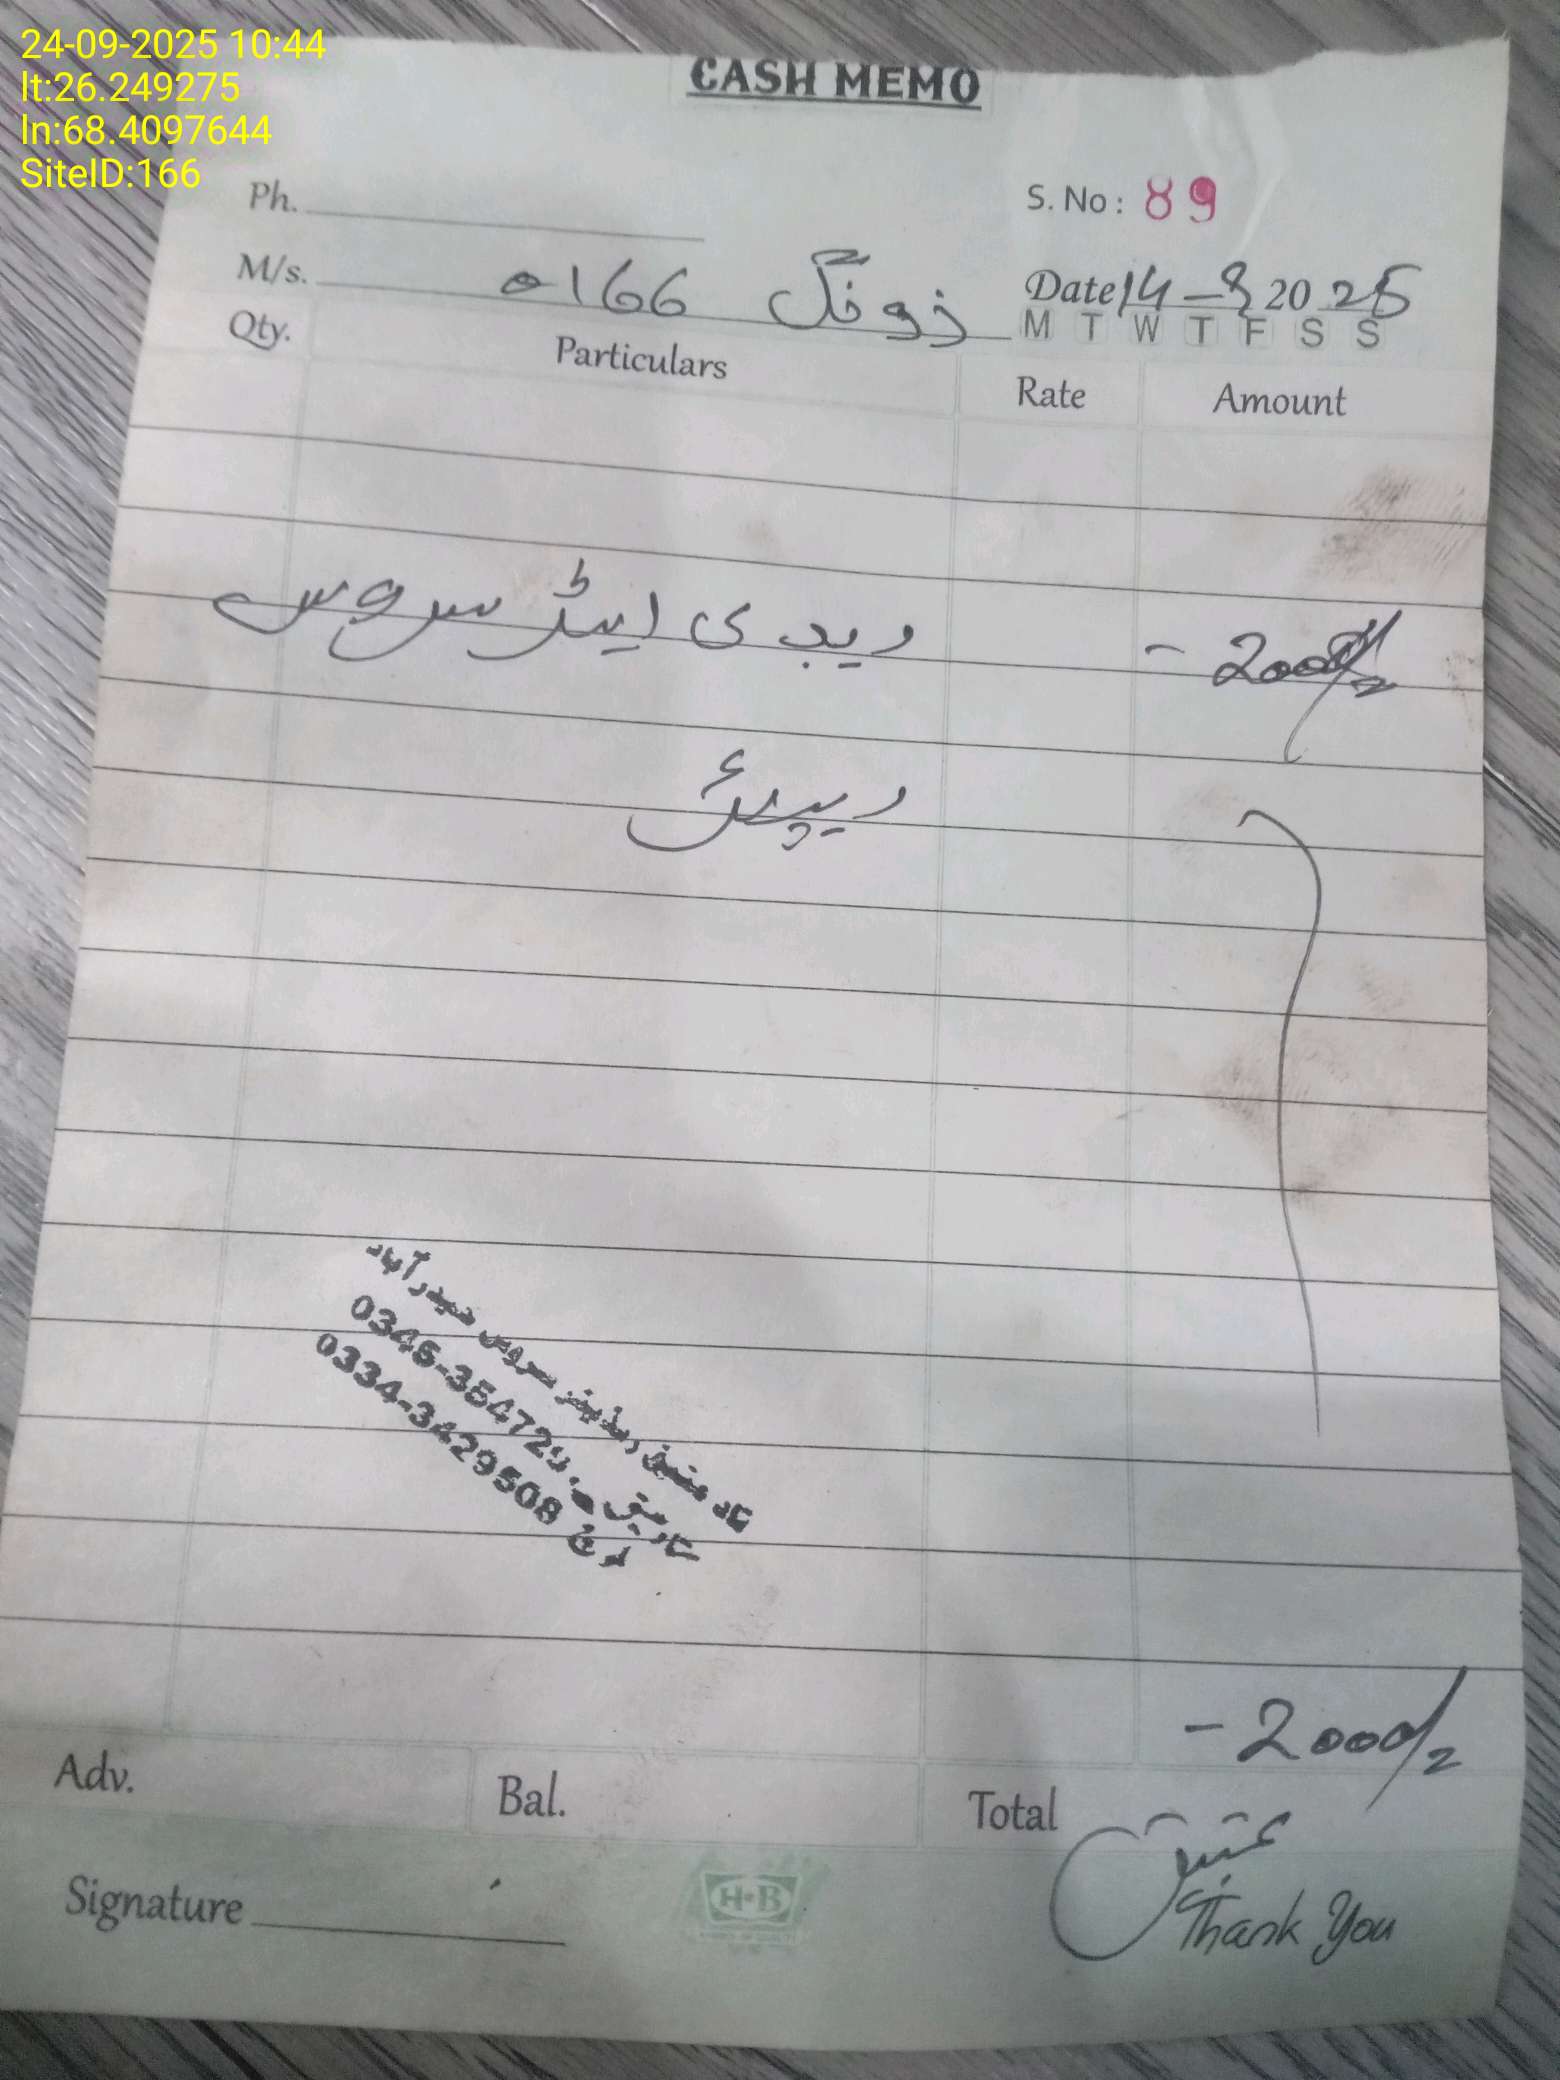 24-09-2025 10:44
lt:26.249275
ln:68.4097644
SiteID:166
CASH MEMO
Ph.
S. No: 89
M/s. زونگ 0166
Date 14-9 20 25
M T W T F S S
Qty. Particulars Rate Amount
ریڈی ایٹر سروس - 2000/2
ریپیئر
عتیق ریڈیٹر سروس حیدرآباد
0334-3429508
- 2000/2
Adv. Bal. Total
عتیق
Signature
H-B
Thank You